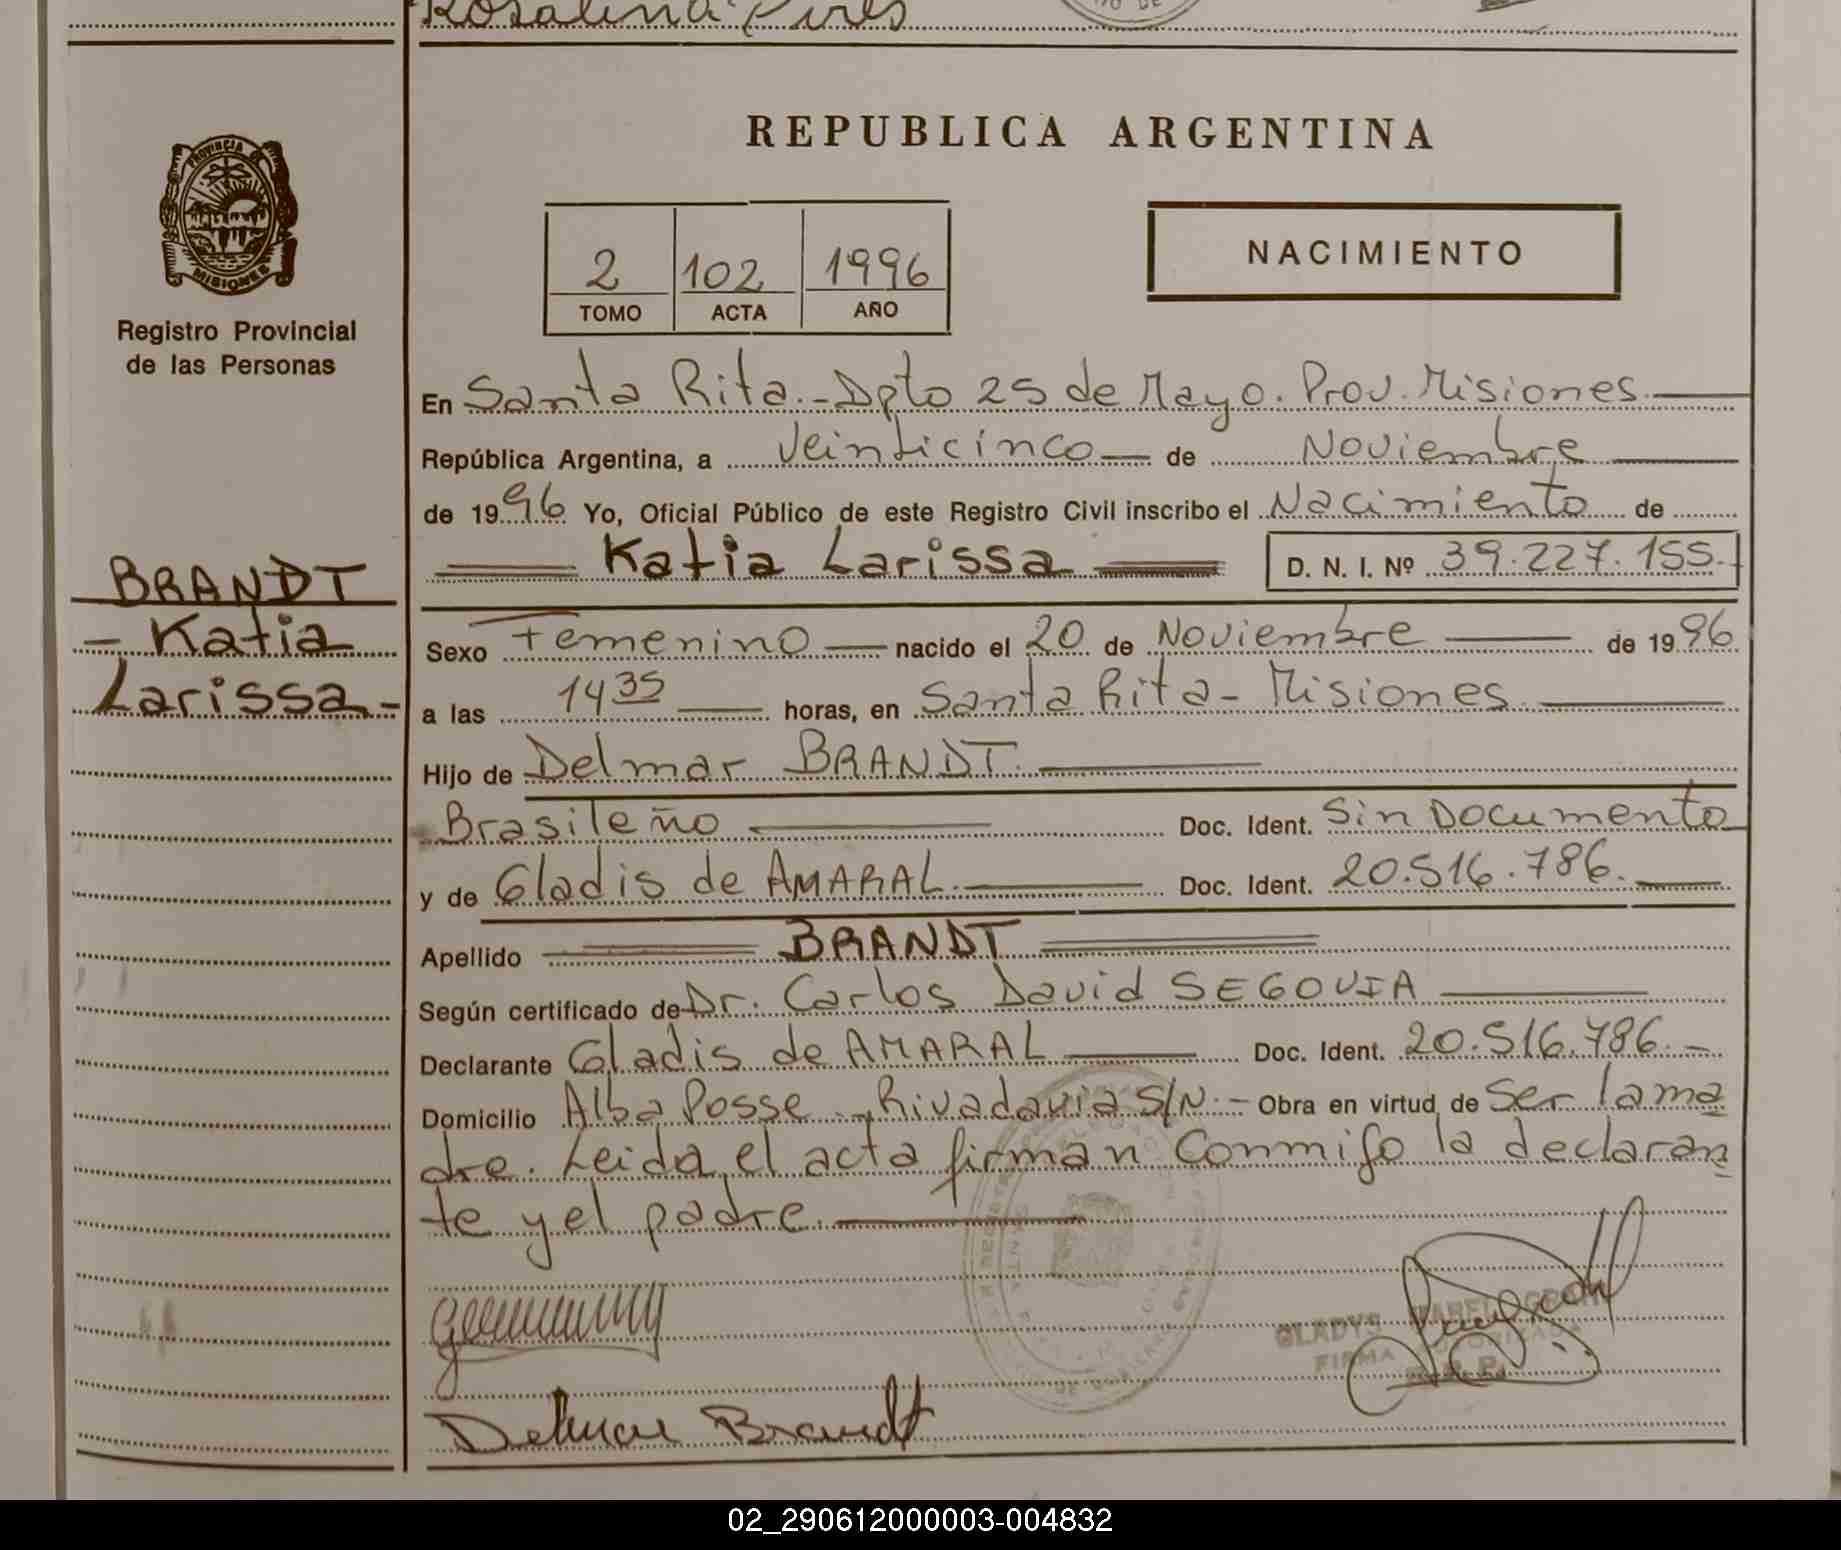 Rosalina Pires
PROVINCIA DE
MISIONES
Registro Provincial
de las Personas
BRANDT
- Katia
Larissa -
REPUBLICA ARGENTINA
2 102 1996
TOMO ACTA AÑO
NACIMIENTO
En Santa Rita.- Dpto 25 de Mayo. Prov. Misiones.
República Argentina, a veinticinco de Noviembre
de 1996 Yo, Oficial Público de este Registro Civil inscribo el Nacimiento de
Katia Larissa D. N. I. Nº 39.227.155.-
Sexo Femenino nacido el 20 de Noviembre de 1996
a las 14 35 horas, en Santa Rita - Misiones
Hijo de Delmar BRANDT.
Brasileño Doc. Ident. Sin Documento
y de Gladis de AMARAL. Doc. Ident. 20.516.786.
Apellido BRANDT
Según certificado de Dr. Carlos David SEGOVIA
Declarante Gladis de AMARAL Doc. Ident. 20.516.786. -
Domicilio Alba Posse - Rivadavia S/N.- Obra en virtud de Ser la ma
dre. Leida el acta firman conmigo la declaran
te y el padre.
GLADYS MABEL
FIRMA AUTORIZADA
R. P.
Delmar Brandt
02_290612000003-004832